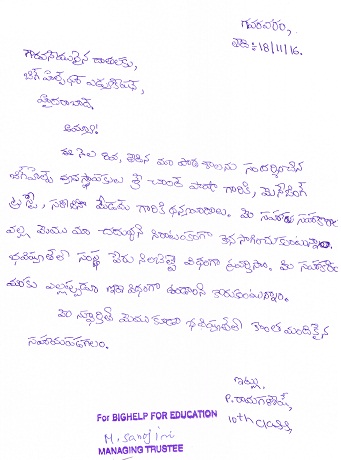 గవరవరం,
తేది: 18/11/16.
గౌరవనీయులైన దాతలకు,
బిగ్ హెల్ప్ ఫర్ ఎడ్యుకేషన్,
హైదరాబాద్.
అమ్మా!
ఈ నెల తేదిన మా పాఠశాలను సందర్శించిన
బిగ్‌హెల్ప్ వ్యవస్థాపకులు శ్రీ చాంద్ పాషా గారికి, మేనేజింగ్
ట్రస్టీ, సరోజినీ మేడమ్ గారికి ధన్యవాదాలు. మీ సహాయ సహకారాల
వల్ల మేము మా చదువును నిరాటంకంగా కొనసాగించుకుంటున్నాం.
భవిష్యత్‌లో సంస్థ పేరు నిలబెట్టే విధంగా ప్రవర్తిస్తాం. మీ సహకారం
మాకు ఎల్లప్పుడూ ఇదే విధంగా ఉండాలని కోరుకుంటున్నాం.
మీ స్ఫూర్తితో మేము కూడా భవిష్యత్‌లో కొంత మందికైన
సహాయపడగలం.
ఇట్లు,
P. రామగణేష్,
10th class,
For BIGHELP FOR EDUCATION
M. Sarojini
MANAGING TRUSTEE